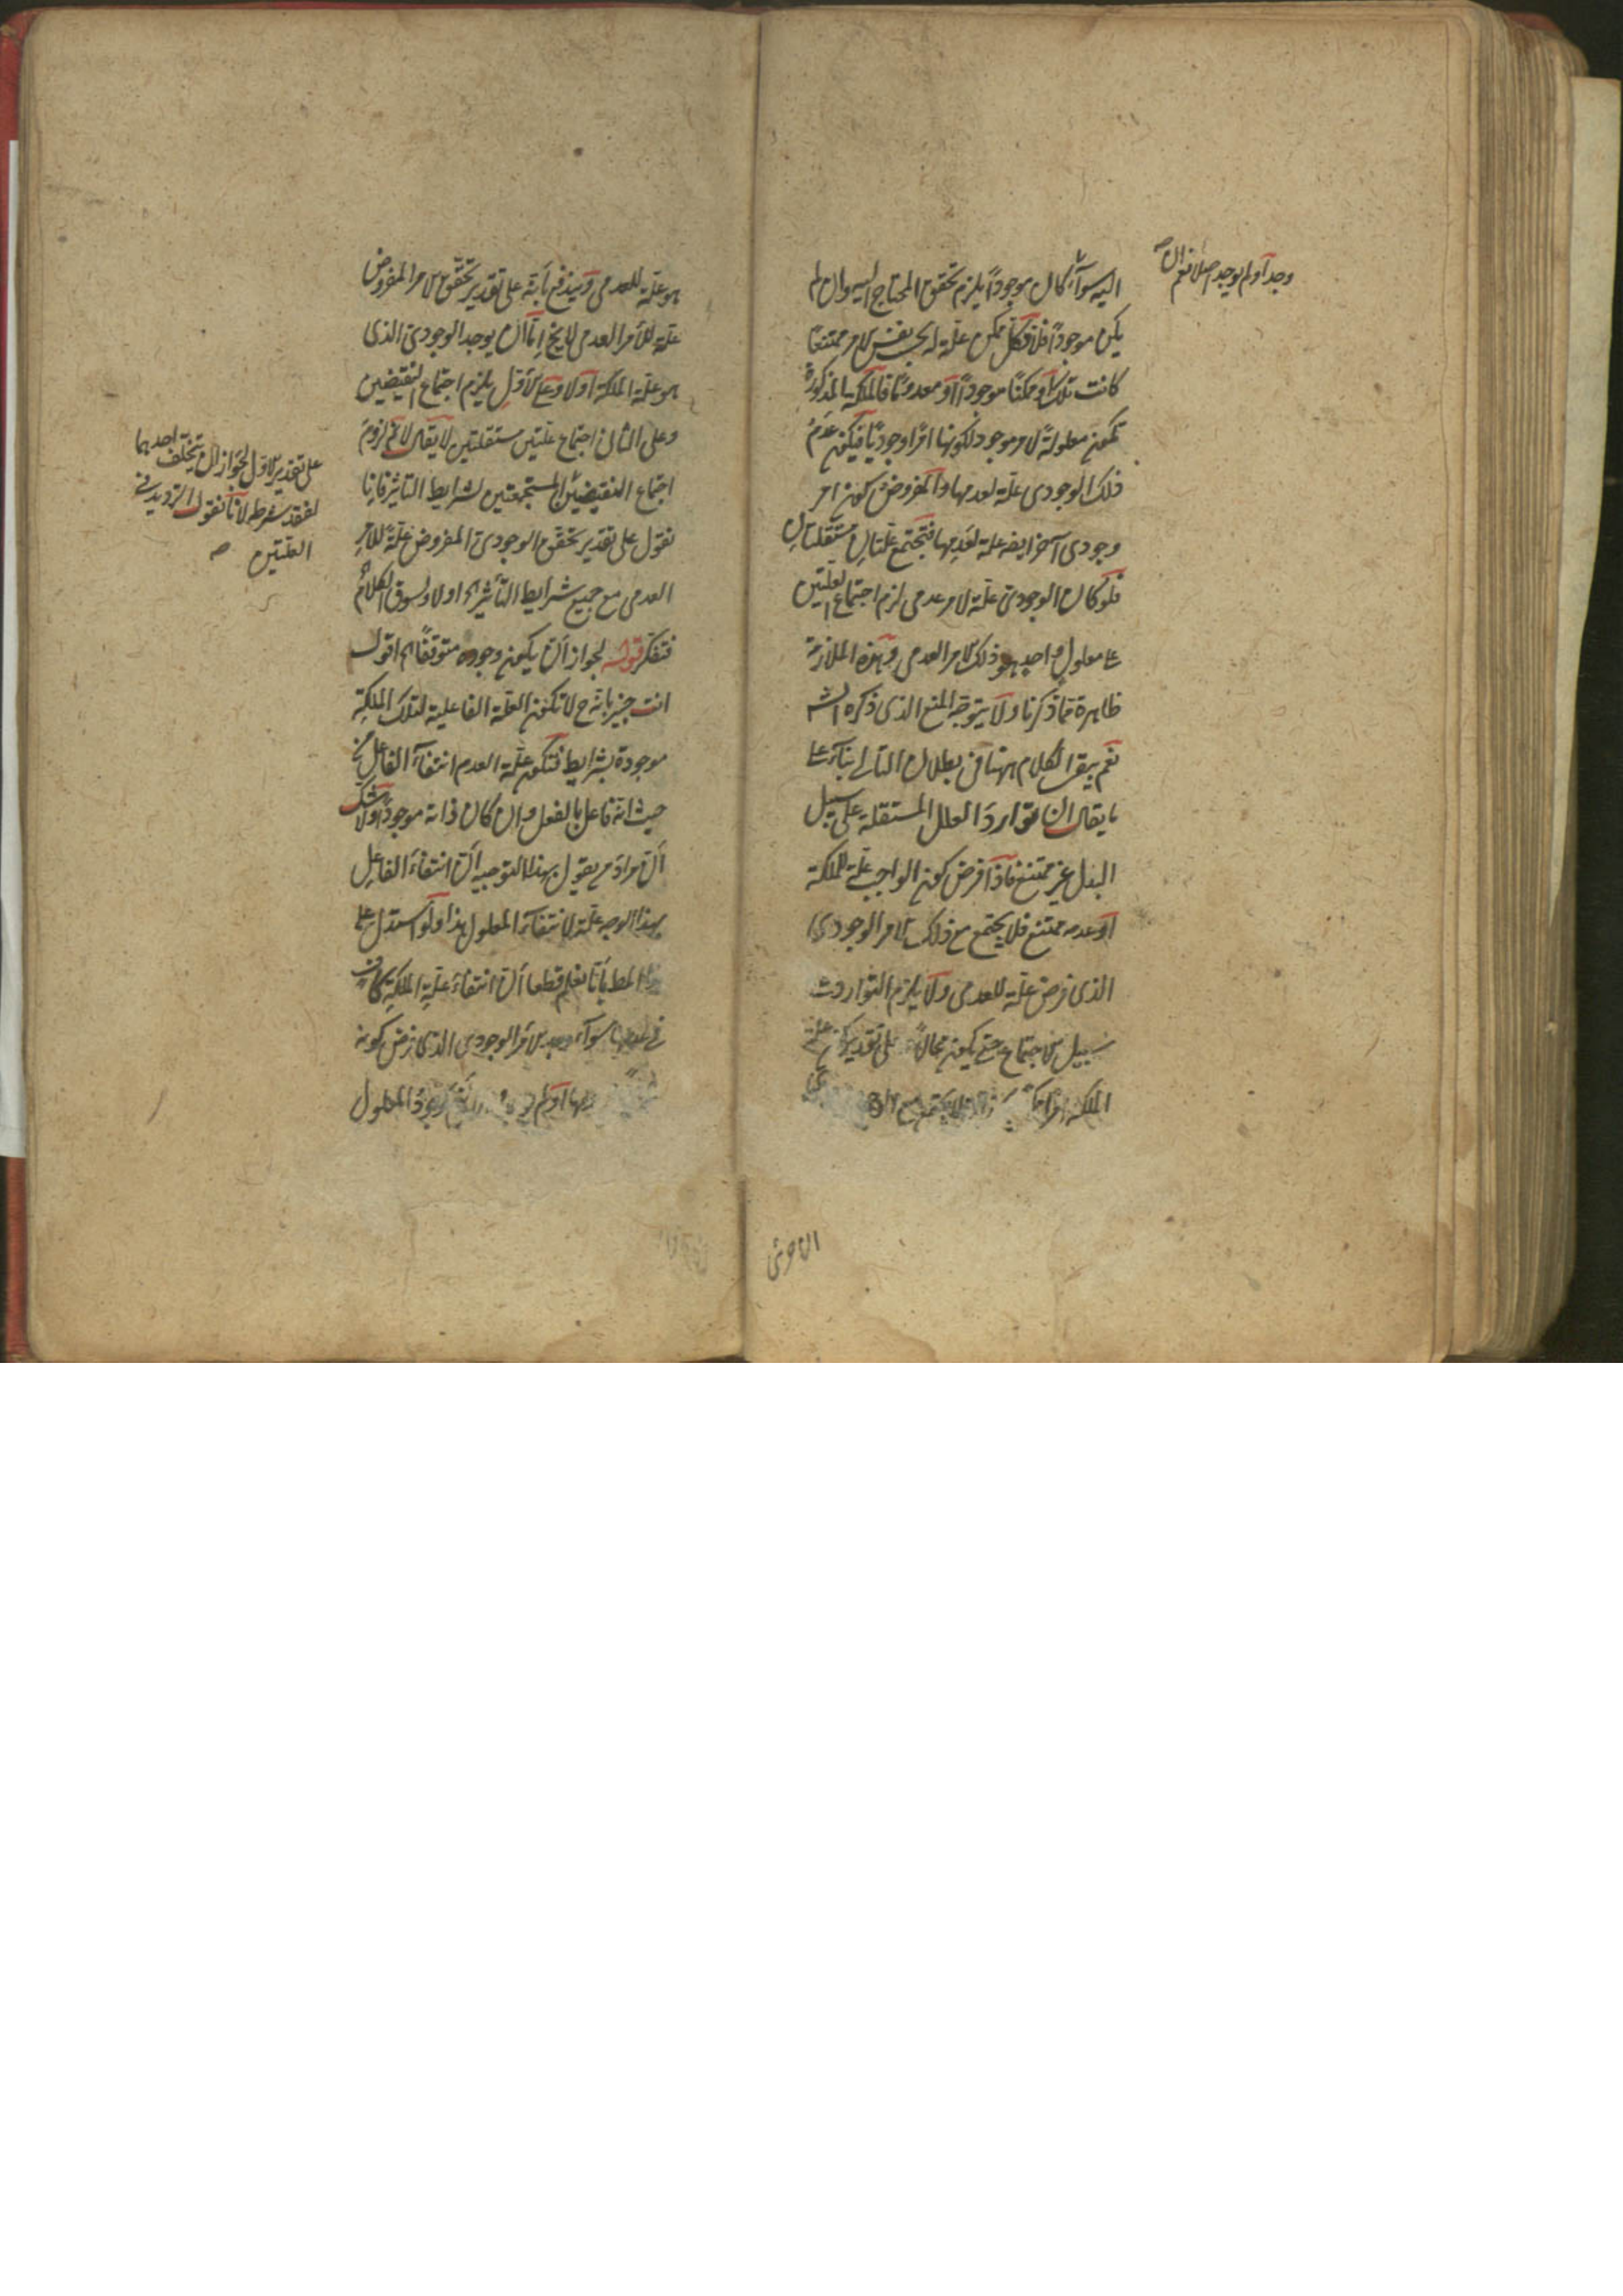 اليه سواء كان موجودًا يلزم تحقق المحتاج اليه وان لم
يكن موجودًا فلا فكل ممكن علة له بحسب نفس الامر ممتنعا
كانت تلك او ممكنا موجودًا او معدومًا فالملكة المذكورة
تكون معلولة لامر موجود لكونها امرًا وجوديًا فيكون عدم
ذلك الوجودى علة لعدمها والمفروض كون امر
وجودى آخر ايضا علة لعدمها فتجتمع علتان مستقلتان
فلو كان الوجودى علة لامر عدمى لزم اجتماع العلتين
على معلول واحد هو ذلك الامر العدمى وهذه الملازمة
ظاهرة مما ذكرنا ولا يتوجه المنع الذى ذكره الش
نعم يبقى الكلام ههنا فى بطلان التالى بناء على
ما يقال ان توارد العلل المستقلة على سبيل
البدل غير ممتنع فاذا فرض كون الواجب علة للملكة
او عدمه ممتنع فلا يجتمع مع ذلك الامر الوجودى
الذى فرض علة للعدمى ولا يلزم التوارد على
سبيل الاجتماع حتى يكون محالا على تقدير كون علة
الملكة امرا
وجد او لم يوجد اصلا نعم ان صح
الاخرى
هو علة للعدمى ويندفع بأنه على تقدير تحقق الامر المفروض
علة للأمر العدمى لا يخ اما ان يوجد الوجودى الذى
هو علة الملكة اولا وعلى الاول يلزم اجتماع النقيضين
وعلى الثانى اجتماع علتين مستقلتين لا يقال لا نم لزوم
اجتماع النقيضين المستجمعتين لشرايط التأثير فانا
نقول على تقدير تحقق الوجودى المفروض علة للامر
العدمى مع جميع شرايط التأثير اه اولا ونسوق الكلام
فتفكر قوله لجواز أن يكون وجوده متوقفًا اه اقول
انت خبير بانه ح لا تكون العلة الفاعلية لتلك الملكة
موجودة بشرايط فتكون علة العدم انتفاء الفاعل من
حيث انه فاعل بالفعل وان كان ذاته موجودًا ولا شك
أن مراد من يقول بهذا التوجيه أن انتفاء الفاعل
بهذا الوجه علة لانتفاء المعلول هذا ولو استدل على
المط بأنا نعلم قطعا أن انتفاء علة الملكة كاف
فى عدمها سواء وجد الامر الوجودى الذى فرض كونه
او لم وجود المعلول
على تقدير الاول لجواز ان يتخلف احديهما
لفقد شرطه لانا نقول الترديد فى
العلتين صح